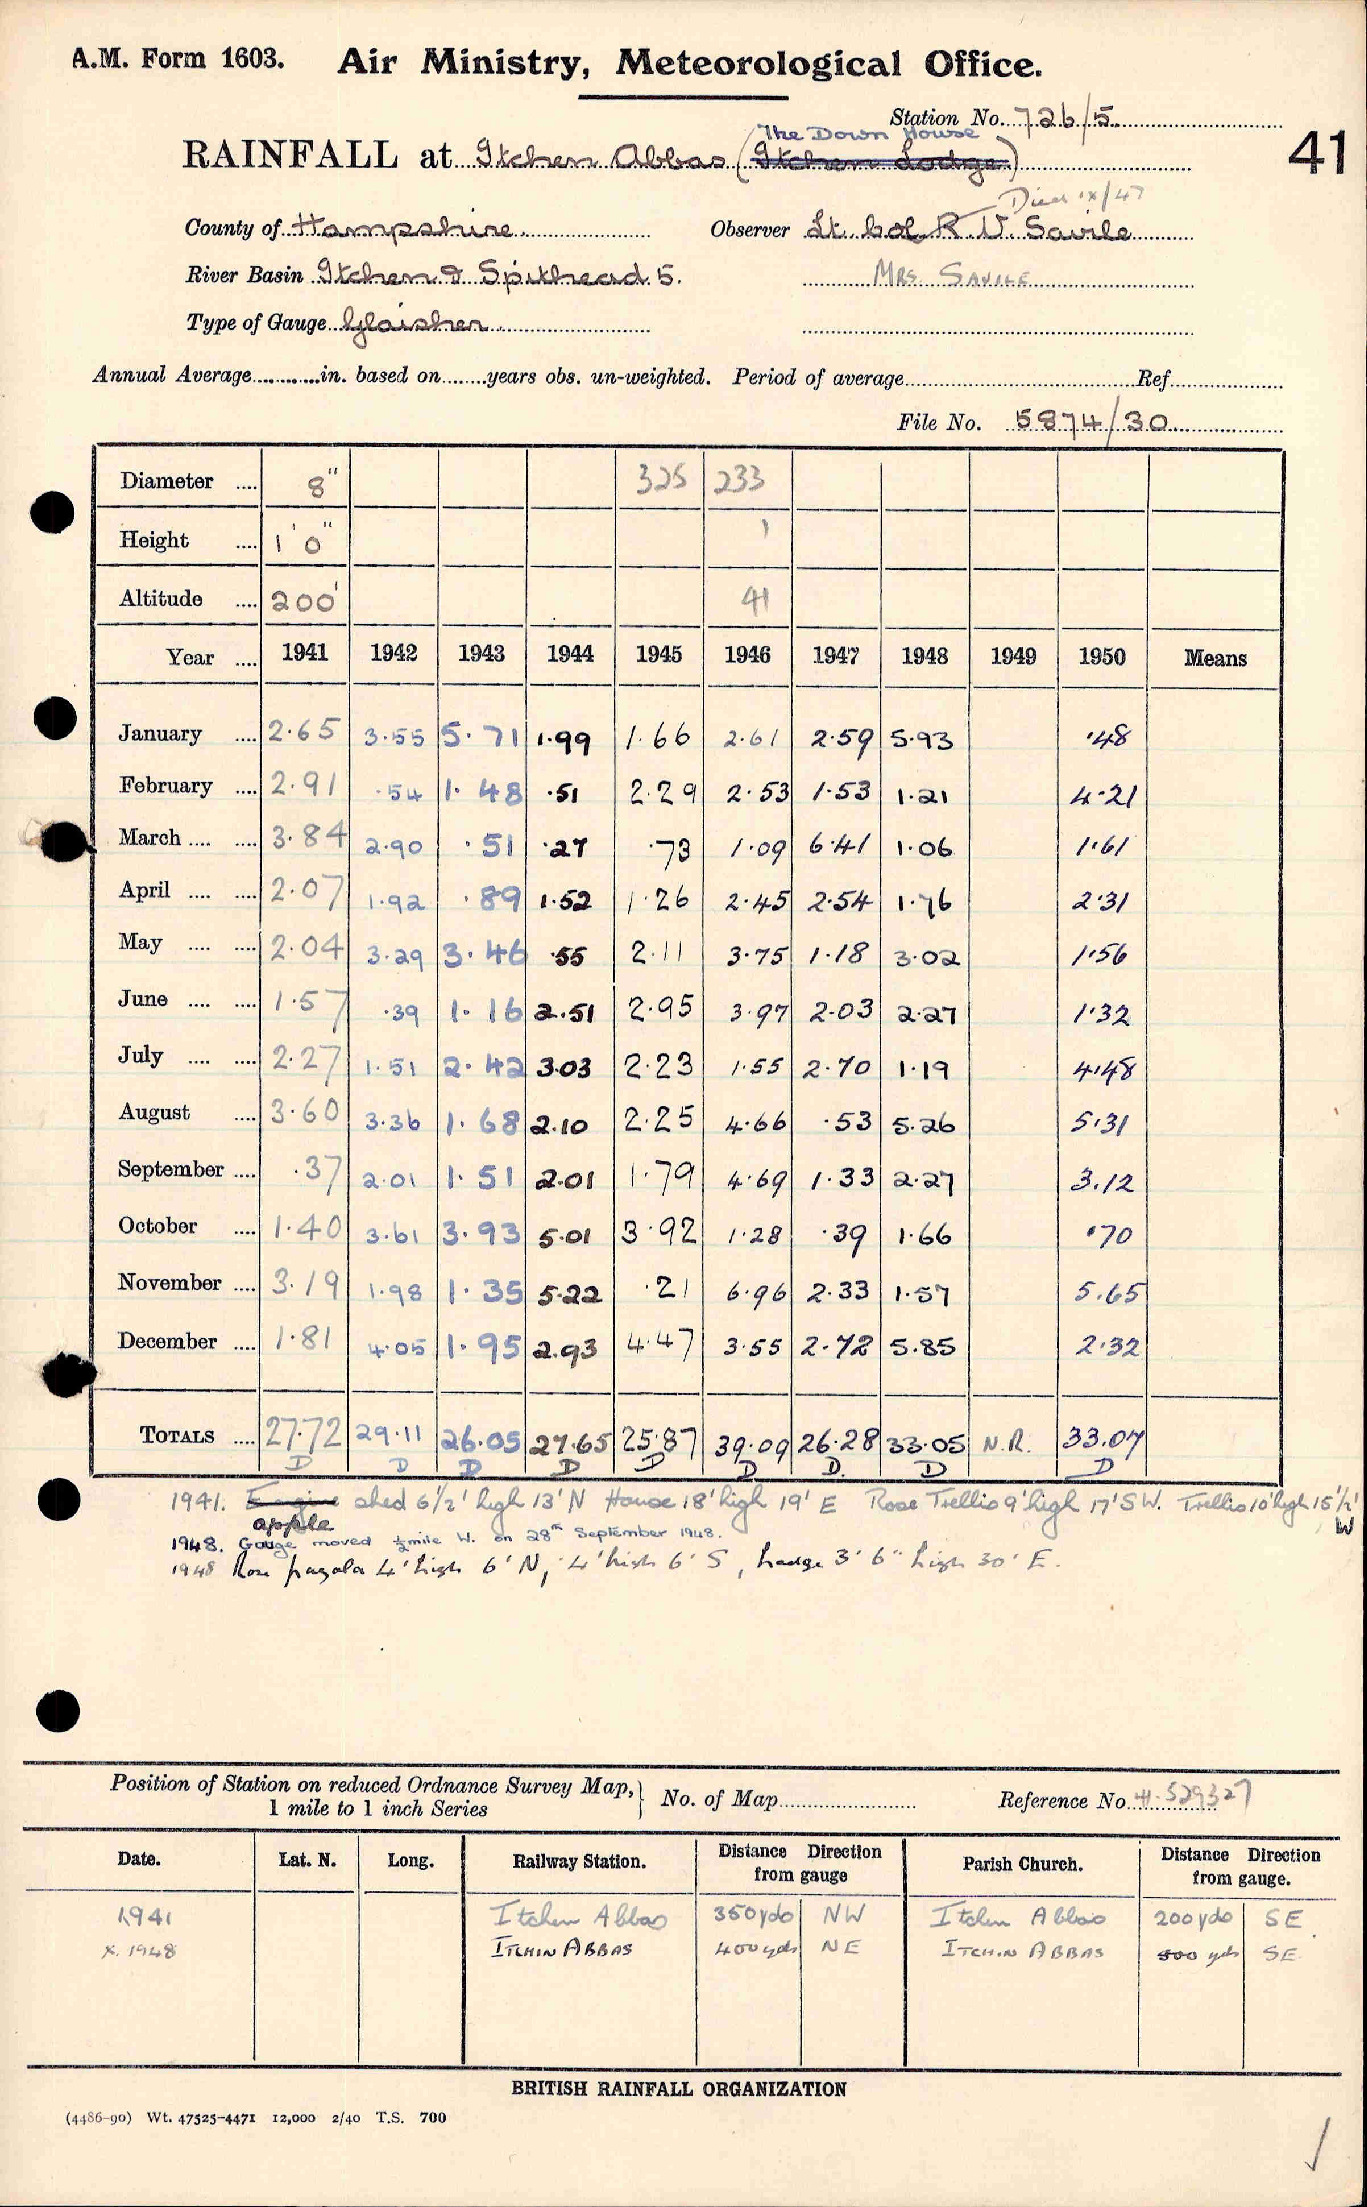 A.M. Form 1603. Air Ministry, Meteorological Office.
Station No. 726/5
The Down House
RAINFALL at Itchen Abbas (Itchen Lodge) 41
Died ix/47
County of Hampshire Observer Lt Col R V. Savile
River Basin Itchen & Spithead 5. MRS. SAVILE
Type of Gauge Glaisher
Annual Average............in. based on........years obs. un-weighted. Period of average Ref.
File No. 5874/30
Diameter .... 8" 325 233
Height .... 1' 0" 1
Altitude .... 200' 41
Year .... 1941 1942 1943 1944 1945 1946 1947 1948 1949 1950 Means
January .... 2.65 3.55 5.71 1.99 1.66 2.61 2.59 5.93 .48
February .... 2.91 .54 1.48 .51 2.29 2.53 1.53 1.21 4.21
March .... .... 3.84 2.90 .51 .27 .73 1.09 6.41 1.06 1.61
April .... .... 2.07 1.92 .89 1.52 1.26 2.45 2.54 1.76 2.31
May .... .... 2.04 3.29 3.46 .55 2.11 3.75 1.18 3.02 1.56
June .... .... 1.57 .39 1.16 2.51 2.95 3.97 2.03 2.27 1.32
July .... .... 2.27 1.51 2.42 3.03 2.23 1.55 2.70 1.19 4.48
August .... 3.60 3.36 1.68 2.10 2.25 4.66 .53 5.26 5.31
September .... .37 2.01 1.51 2.01 1.79 4.69 1.33 2.27 3.12
October .... 1.40 3.61 3.93 5.01 3.92 1.28 .39 1.66 .70
November .... 3.19 1.98 1.35 5.22 .21 6.96 2.33 1.57 5.65
December .... 1.81 4.05 1.95 2.93 4.47 3.55 2.72 5.85 2.32
TOTALS .... 27.72 29.11 26.05 27.65 25.87 39.09 26.28 33.05 N.R. 33.07
D D D D D D D. D D
1941. Engine shed 6½' high 13' N House 18' high 19' E Rose Trellis 9' high 17' SW. Trellis 10' high 15½' W
apple
1948. Gauge moved ½ mile W. on 28th September 1948.
1948 Rose pagola 4' high 6' N, 4' high 6' S, hedge 3' 6" high 30' E.
Position of Station on reduced Ordnance Survey Map, 1 mile to 1 inch Series } No. of Map Reference No. 41.529327
Date. Lat. N. Long. Railway Station. Distance Direction from gauge Parish Church. Distance Direction from gauge.
1941 Itchen Abbas 350 yds NW Itchen Abbas 200 yds SE
x. 1948 ITCHIN ABBAS 400 yds NE ITCHIN ABBAS 500 yds SE
BRITISH RAINFALL ORGANIZATION
(4486-90) Wt. 47525-4471 12,000 2/40 T.S. 700